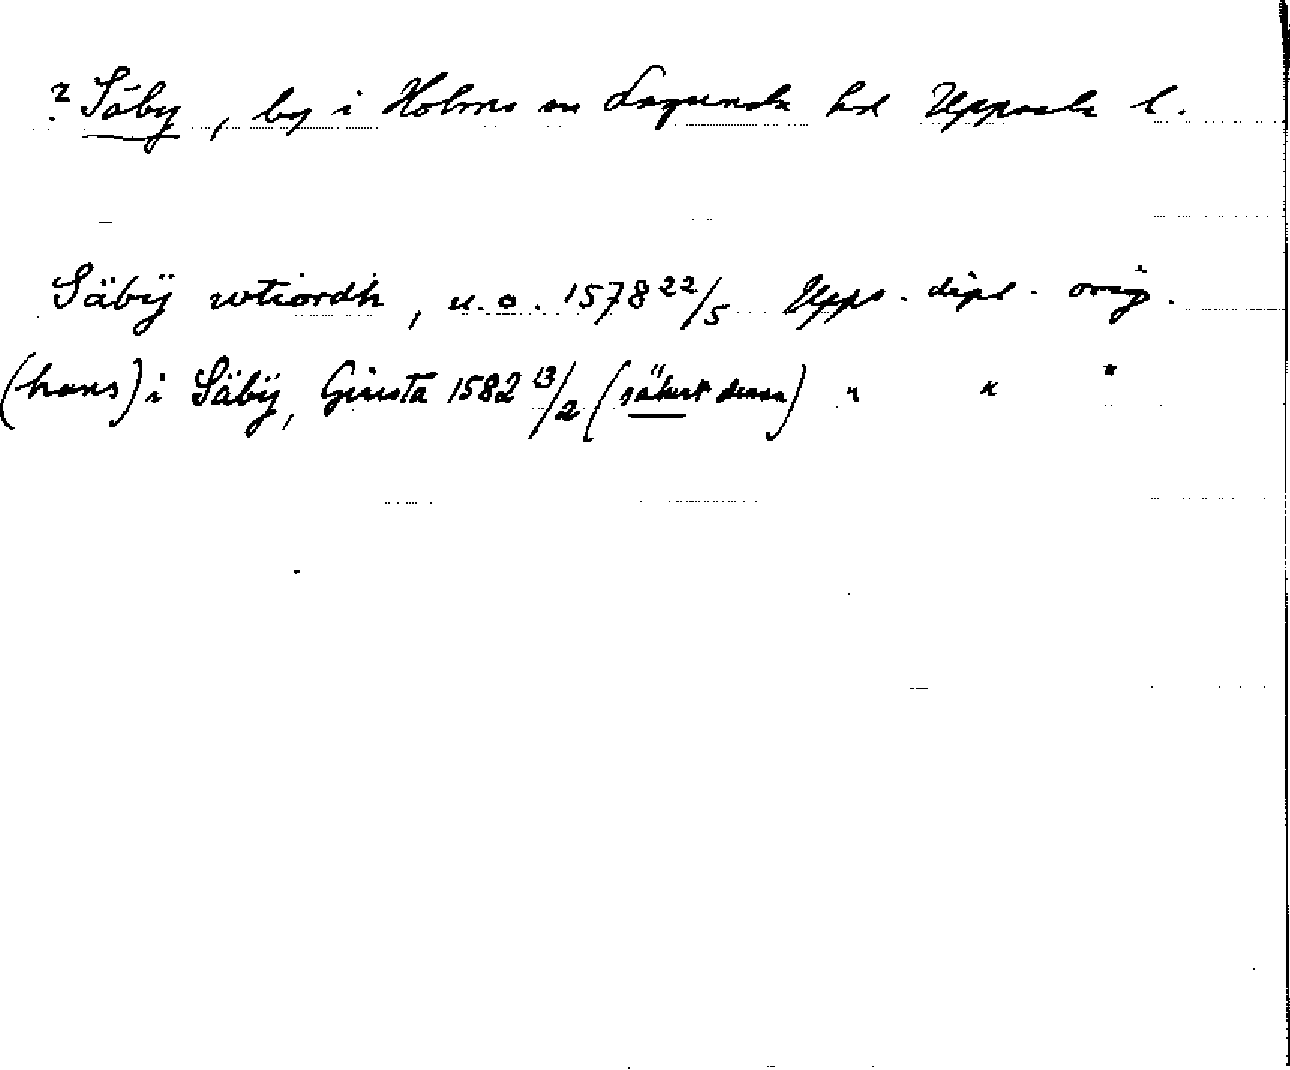 ? Säby, by i Holms sn Lagunda hd Uppsala l.
Säbÿ wtiordh, u.o. 1578 22/5 Upps. dipl. orig.
(hans) i Säbÿ, Giusta 1582 13/2 (säkert denna) " " "